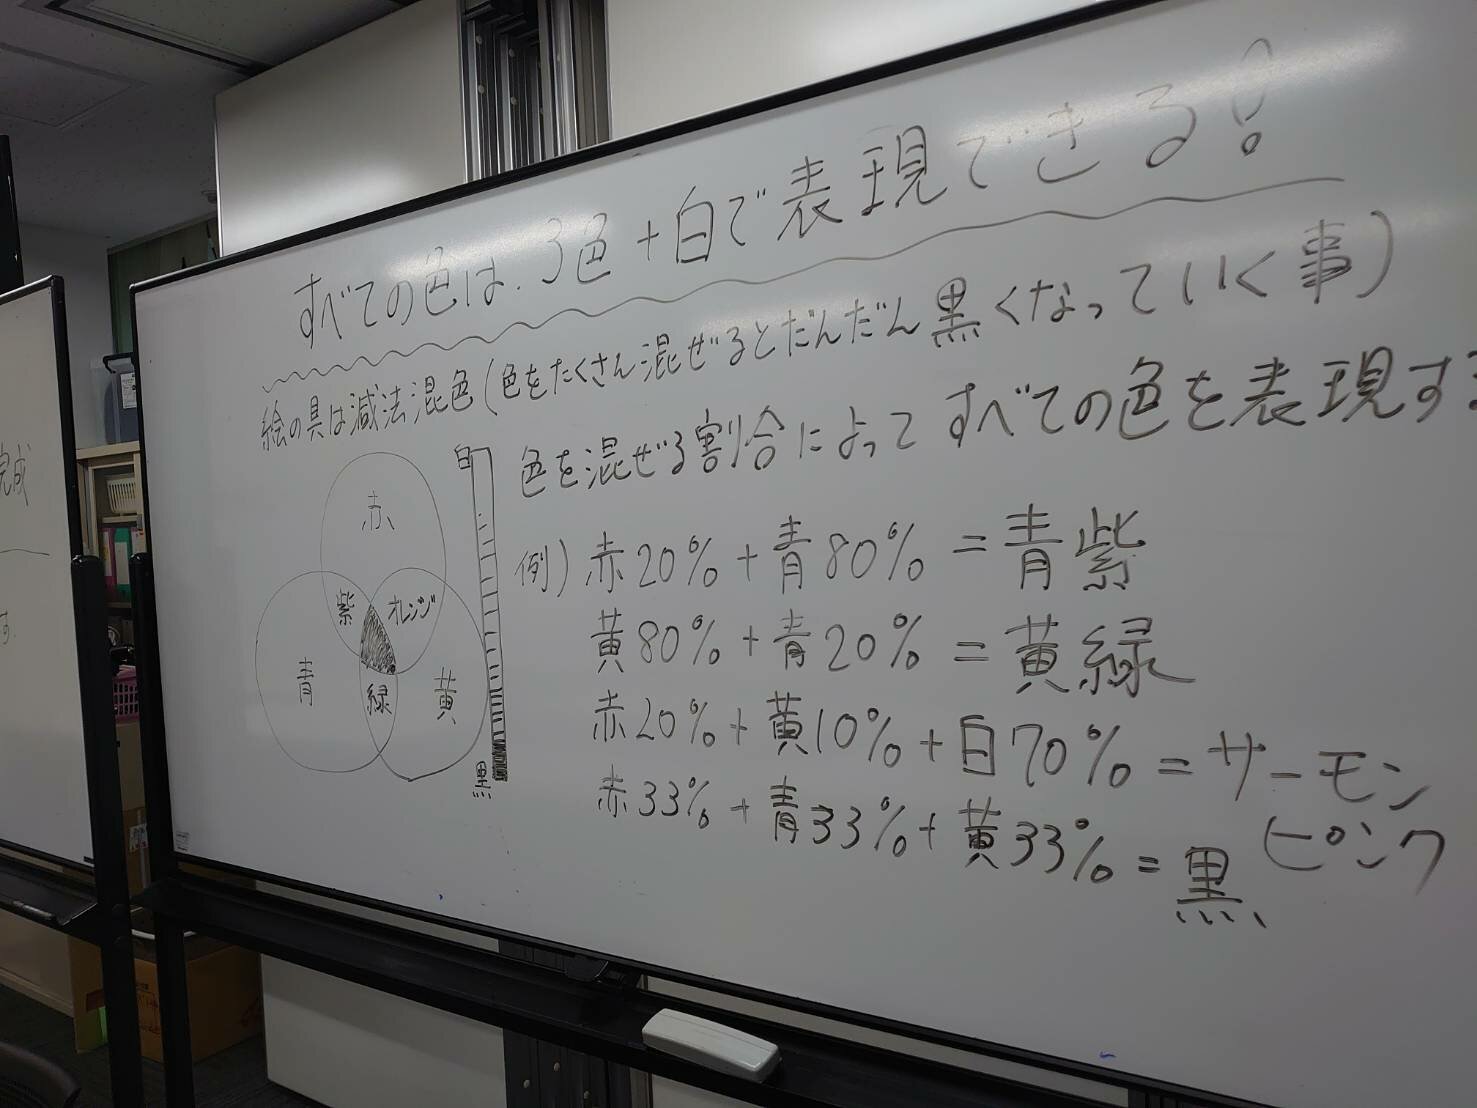 すべての色は、3色+白で表現できる!
絵の具は減法混色(色をたくさん混ぜるとだんだん黒くなっていく事)
色を混ぜる割合によってすべての色を表現す
白
赤
紫
オレンジ
青
緑
黄
黒
例)赤20%+青80%=青紫
黄80%+青20%=黄緑
赤20%+黄10%+白70%=サーモン
ピンク
赤33%+青33%+黄33%=黒
完成
す.